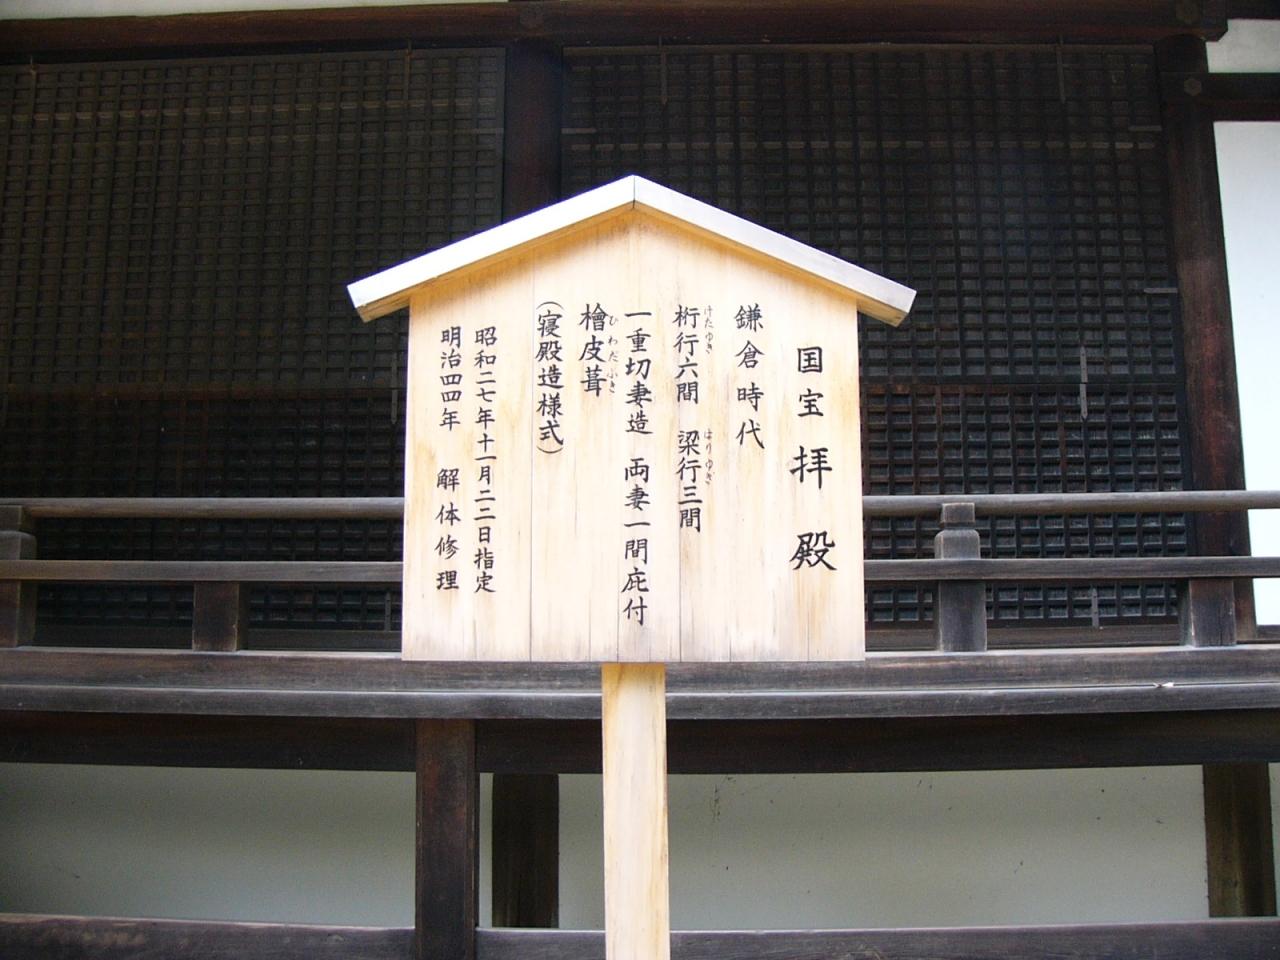 国宝 拝殿
鎌倉時代
桁行六間 梁行三間
けたゆき はりゆき
一重切妻造 両妻一間庇付
檜皮葺
ひわだぶき
（寝殿造様式）
昭和二七年十一月二二日指定
明治四四年 解体修理